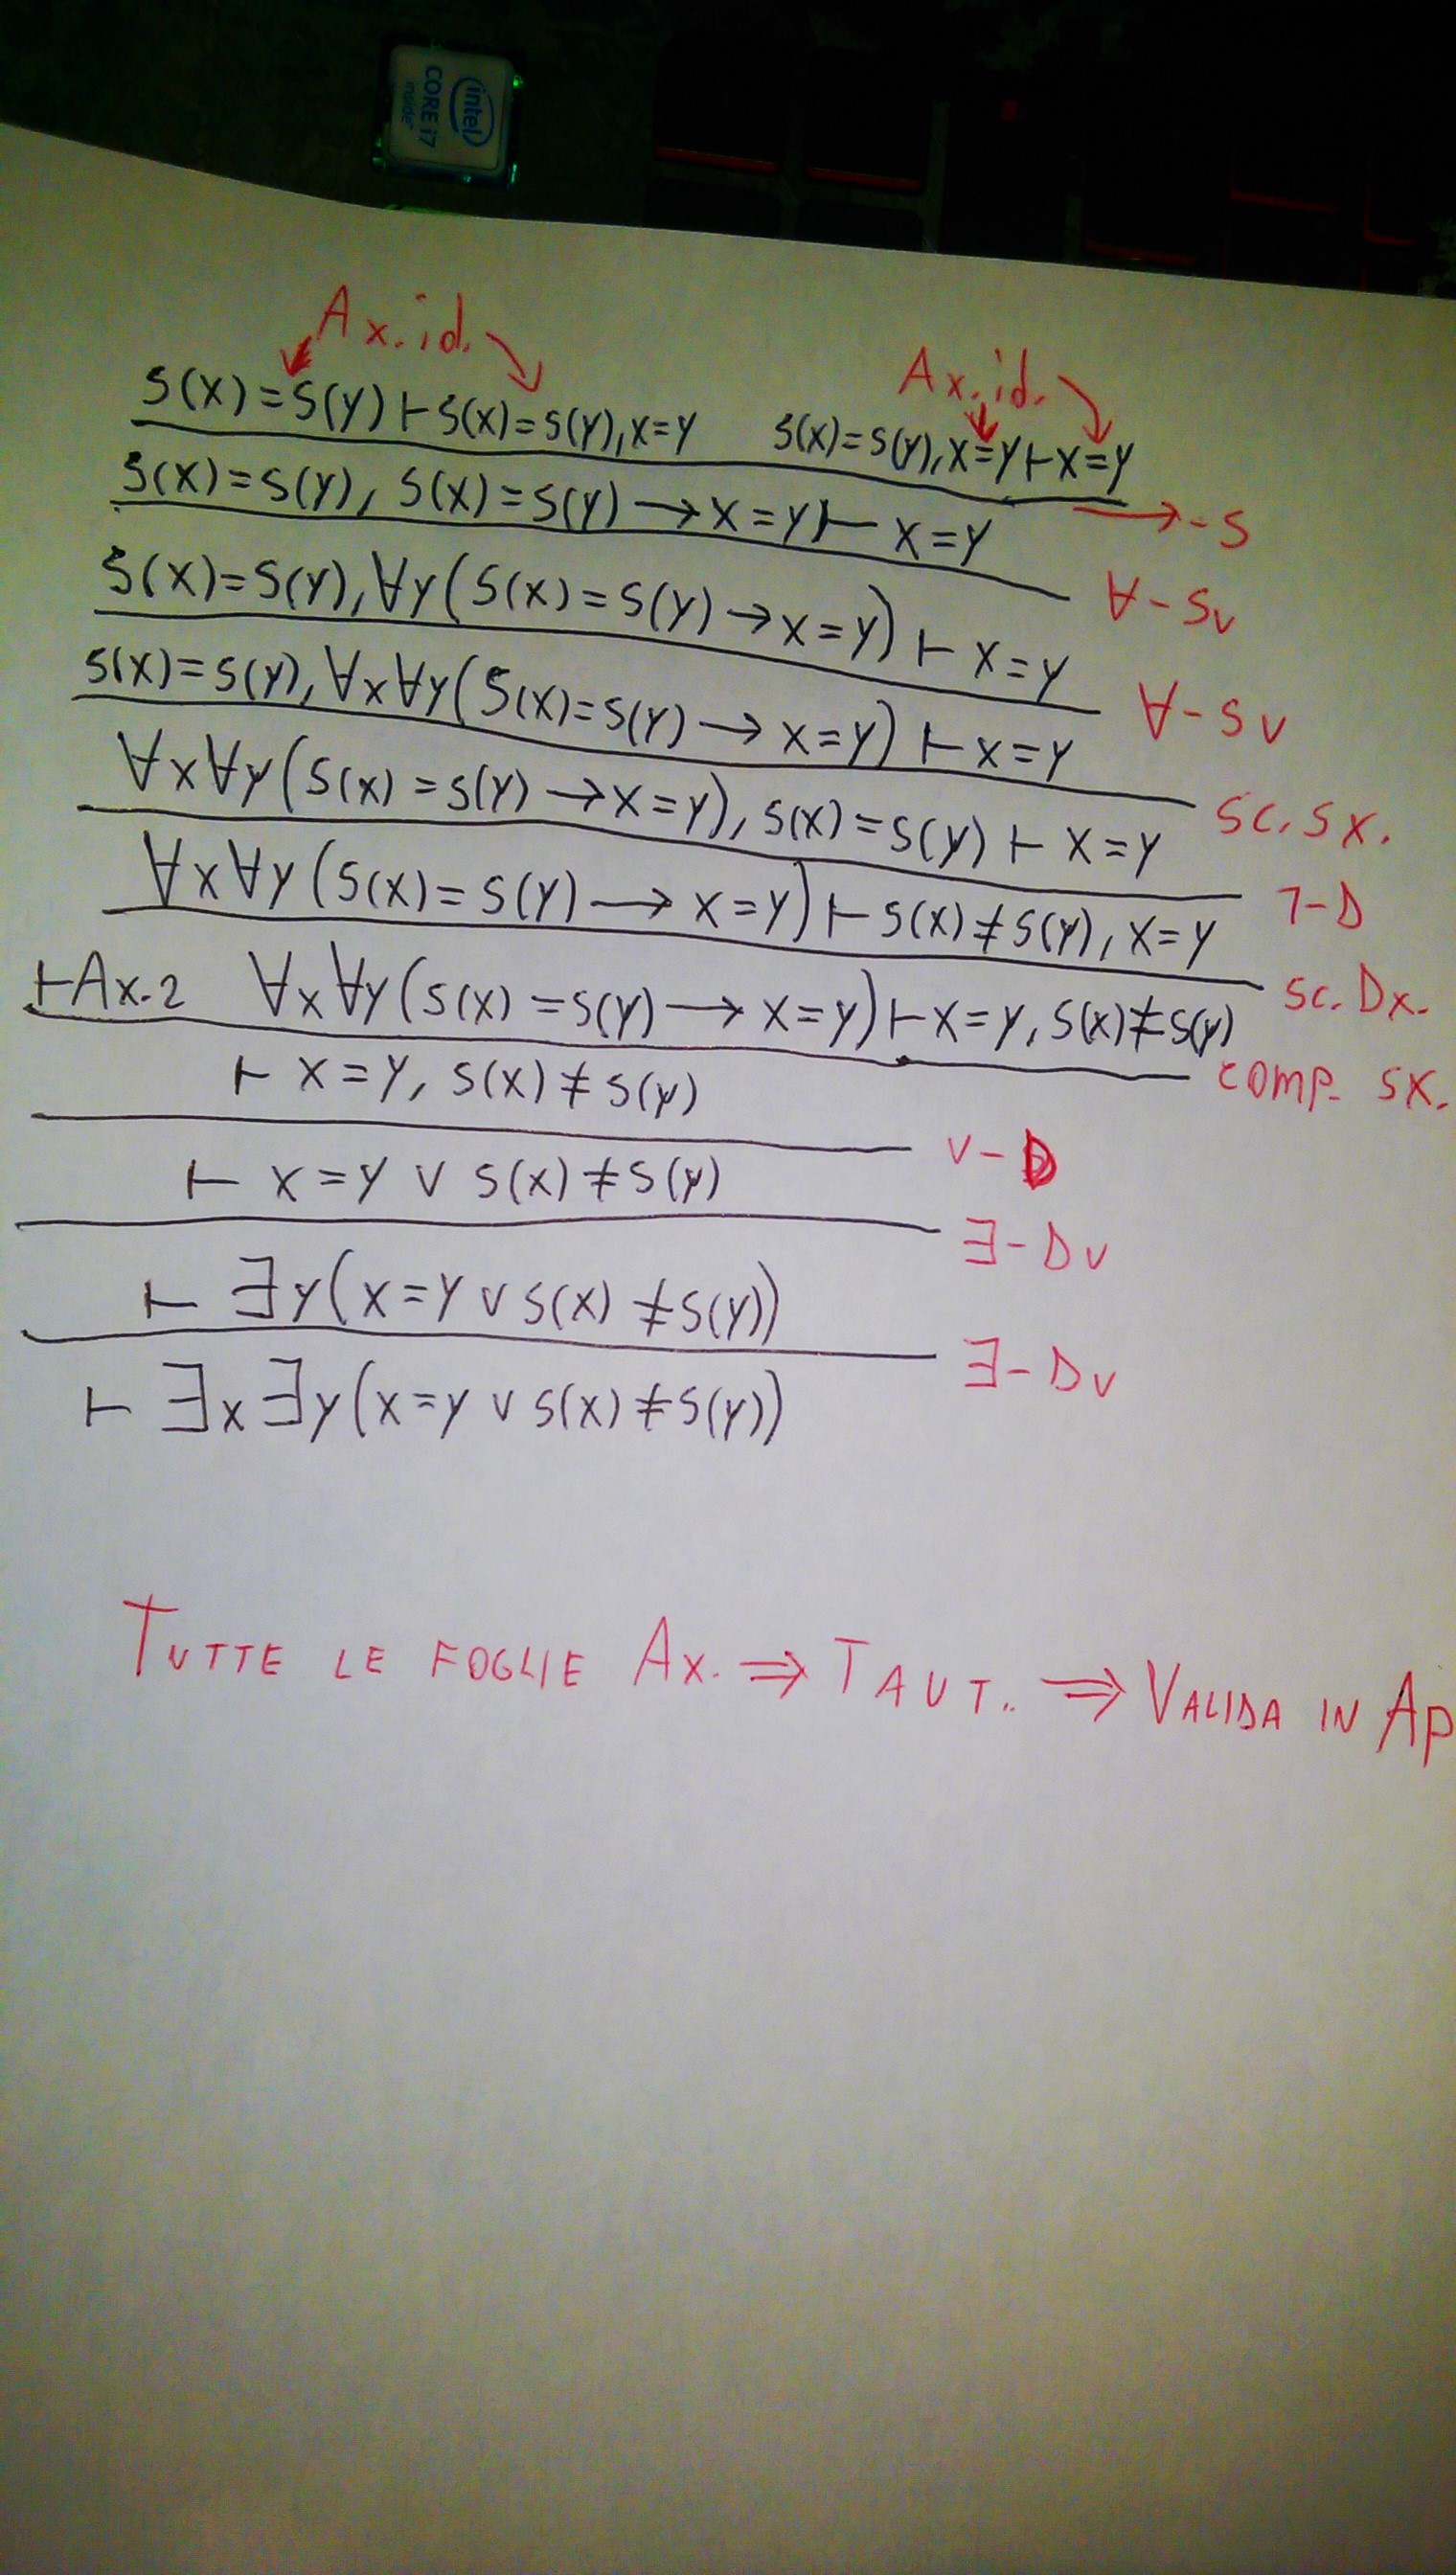 intel
CORE i7
inside™
Ax. id.
Ax. id.
S(x)=S(y)⊢S(x)=S(y), x=y S(x)=S(y), x=y⊢x=y
→-S
S(x)=S(y), S(x)=S(y)→x=y⊢x=y
∀-Sv
S(x)=S(y), ∀y(S(x)=S(y)→x=y)⊢x=y
∀-Sv
S(x)=S(y), ∀x∀y(S(x)=S(y)→x=y)⊢x=y
sc. sx.
∀x∀y(S(x)=S(y)→x=y), S(x)=S(y)⊢x=y
¬-D
∀x∀y(S(x)=S(y)→x=y)⊢S(x)≠S(y), x=y
sc. Dx.
⊢Ax.2 ∀x∀y(S(x)=S(y)→x=y)⊢x=y, S(x)≠S(y)
comp. sx.
⊢ x=y, S(x)≠S(y)
∨-D
⊢ x=y ∨ S(x)≠S(y)
∃-Dv
⊢ ∃y(x=y ∨ S(x)≠S(y))
∃-Dv
⊢ ∃x∃y(x=y ∨ S(x)≠S(y))
TUTTE LE FOGLIE Ax. ⇒ TAUT. ⇒ VALIDA IN Ap